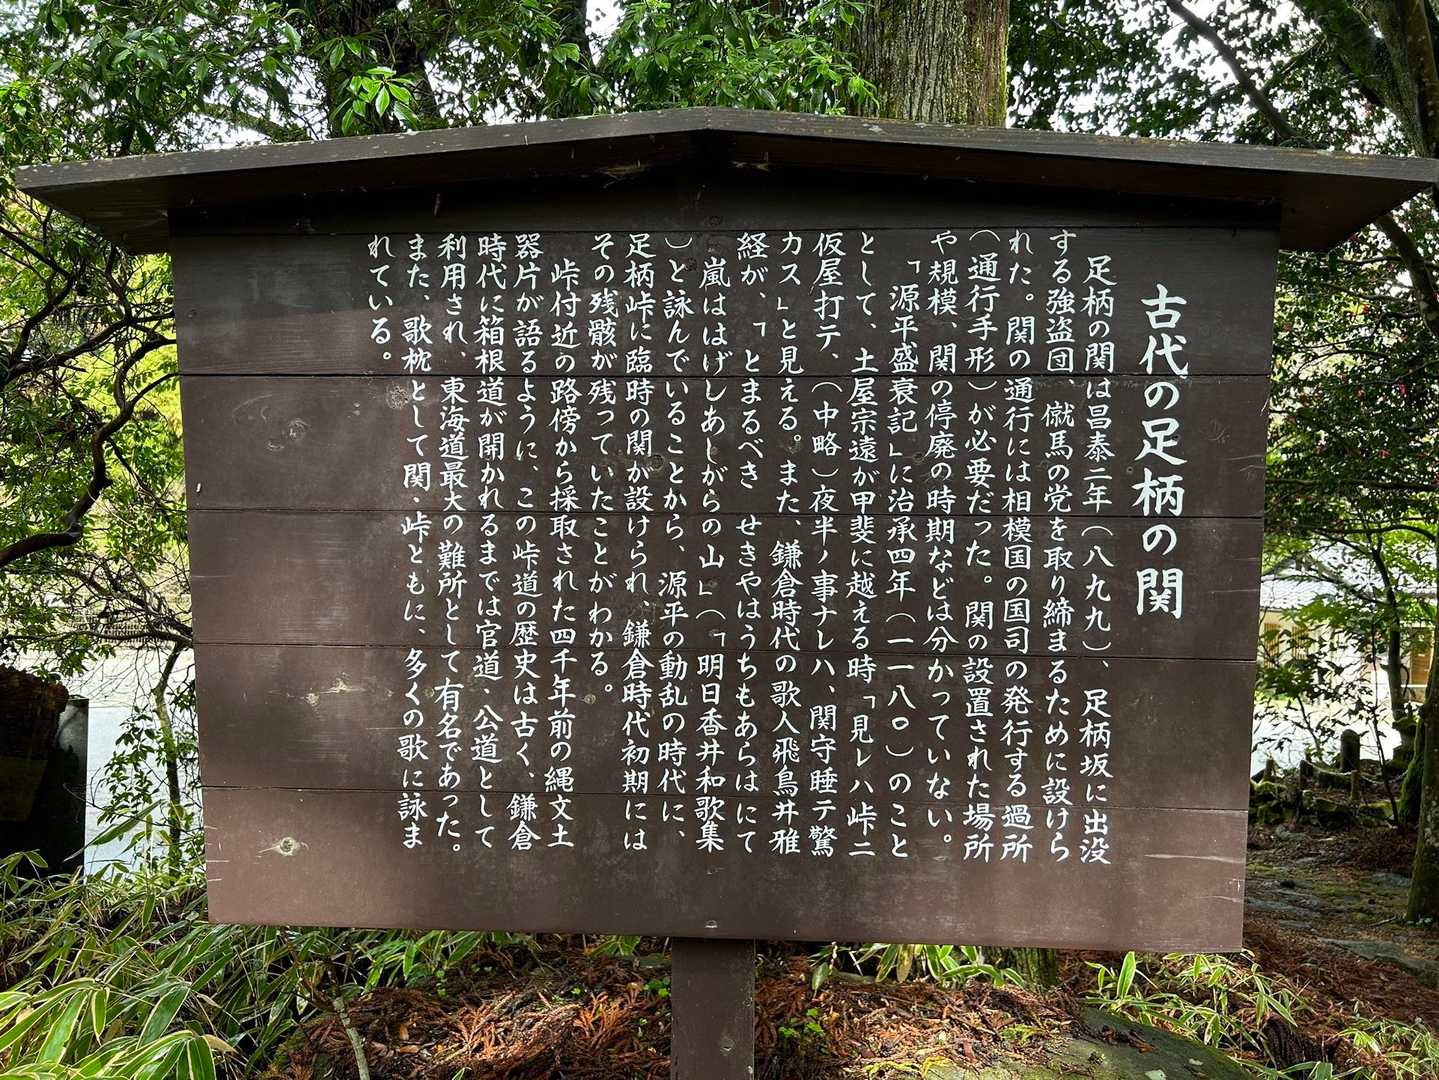 古代の足柄の関
足柄の関は昌泰二年（八九九）、足柄坂に出没
する強盗団、僦馬の党を取り締まるために設けら
れた。関の通行には相模国の国司の発行する過所
（通行手形）が必要だった。関の設置された場所
や規模、関の停廃の時期などは分かっていない。
「源平盛衰記」に治承四年（一一八〇）のこと
として、土屋宗遠が甲斐に越える時「見レハ峠ニ
仮屋打テ、（中略）夜半ノ事ナレハ、関守睡テ驚
カス」と見える。また、鎌倉時代の歌人飛鳥井雅
経が、「とまるべき　せきやはうちもあらはにて
嵐ははげしあしがらの山」（「明日香井和歌集
）と詠んでいることから、源平の動乱の時代に、
足柄峠に臨時の関が設けられ　鎌倉時代初期には
その残骸が残っていたことがわかる。
峠付近の路傍から採取された四千年前の縄文土
器片が語るように、この峠道の歴史は古く、鎌倉
時代に箱根道が開かれるまでは官道・公道として
利用され、東海道最大の難所として有名であった。
また、歌枕として関・峠ともに、多くの歌に詠ま
れている。